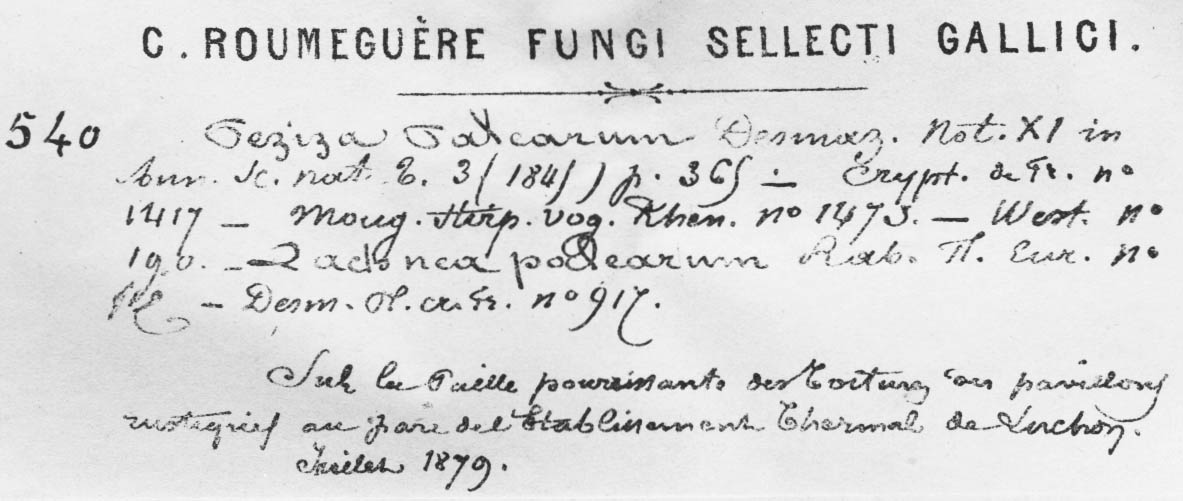 C. ROUMEGUÈRE FUNGI SELLECTI GALLICI.
540 Peziza Palearum Desmaz. Not. XI in
Ann. Sc. nat. 3 (1845) p. 365 — Crypt. de Fr. no
1417 — Moug. Stirp. Vog. Rhen. no 1473. — West. no
190. — Rab. Eur. no
— Desm. Pl. cr. Fr. no 917.
Sur la Paille pourrissante des Toitures des pavillons
rustiques au parc de l'Etablissement Thermal de Luchon.
Juillet 1879.